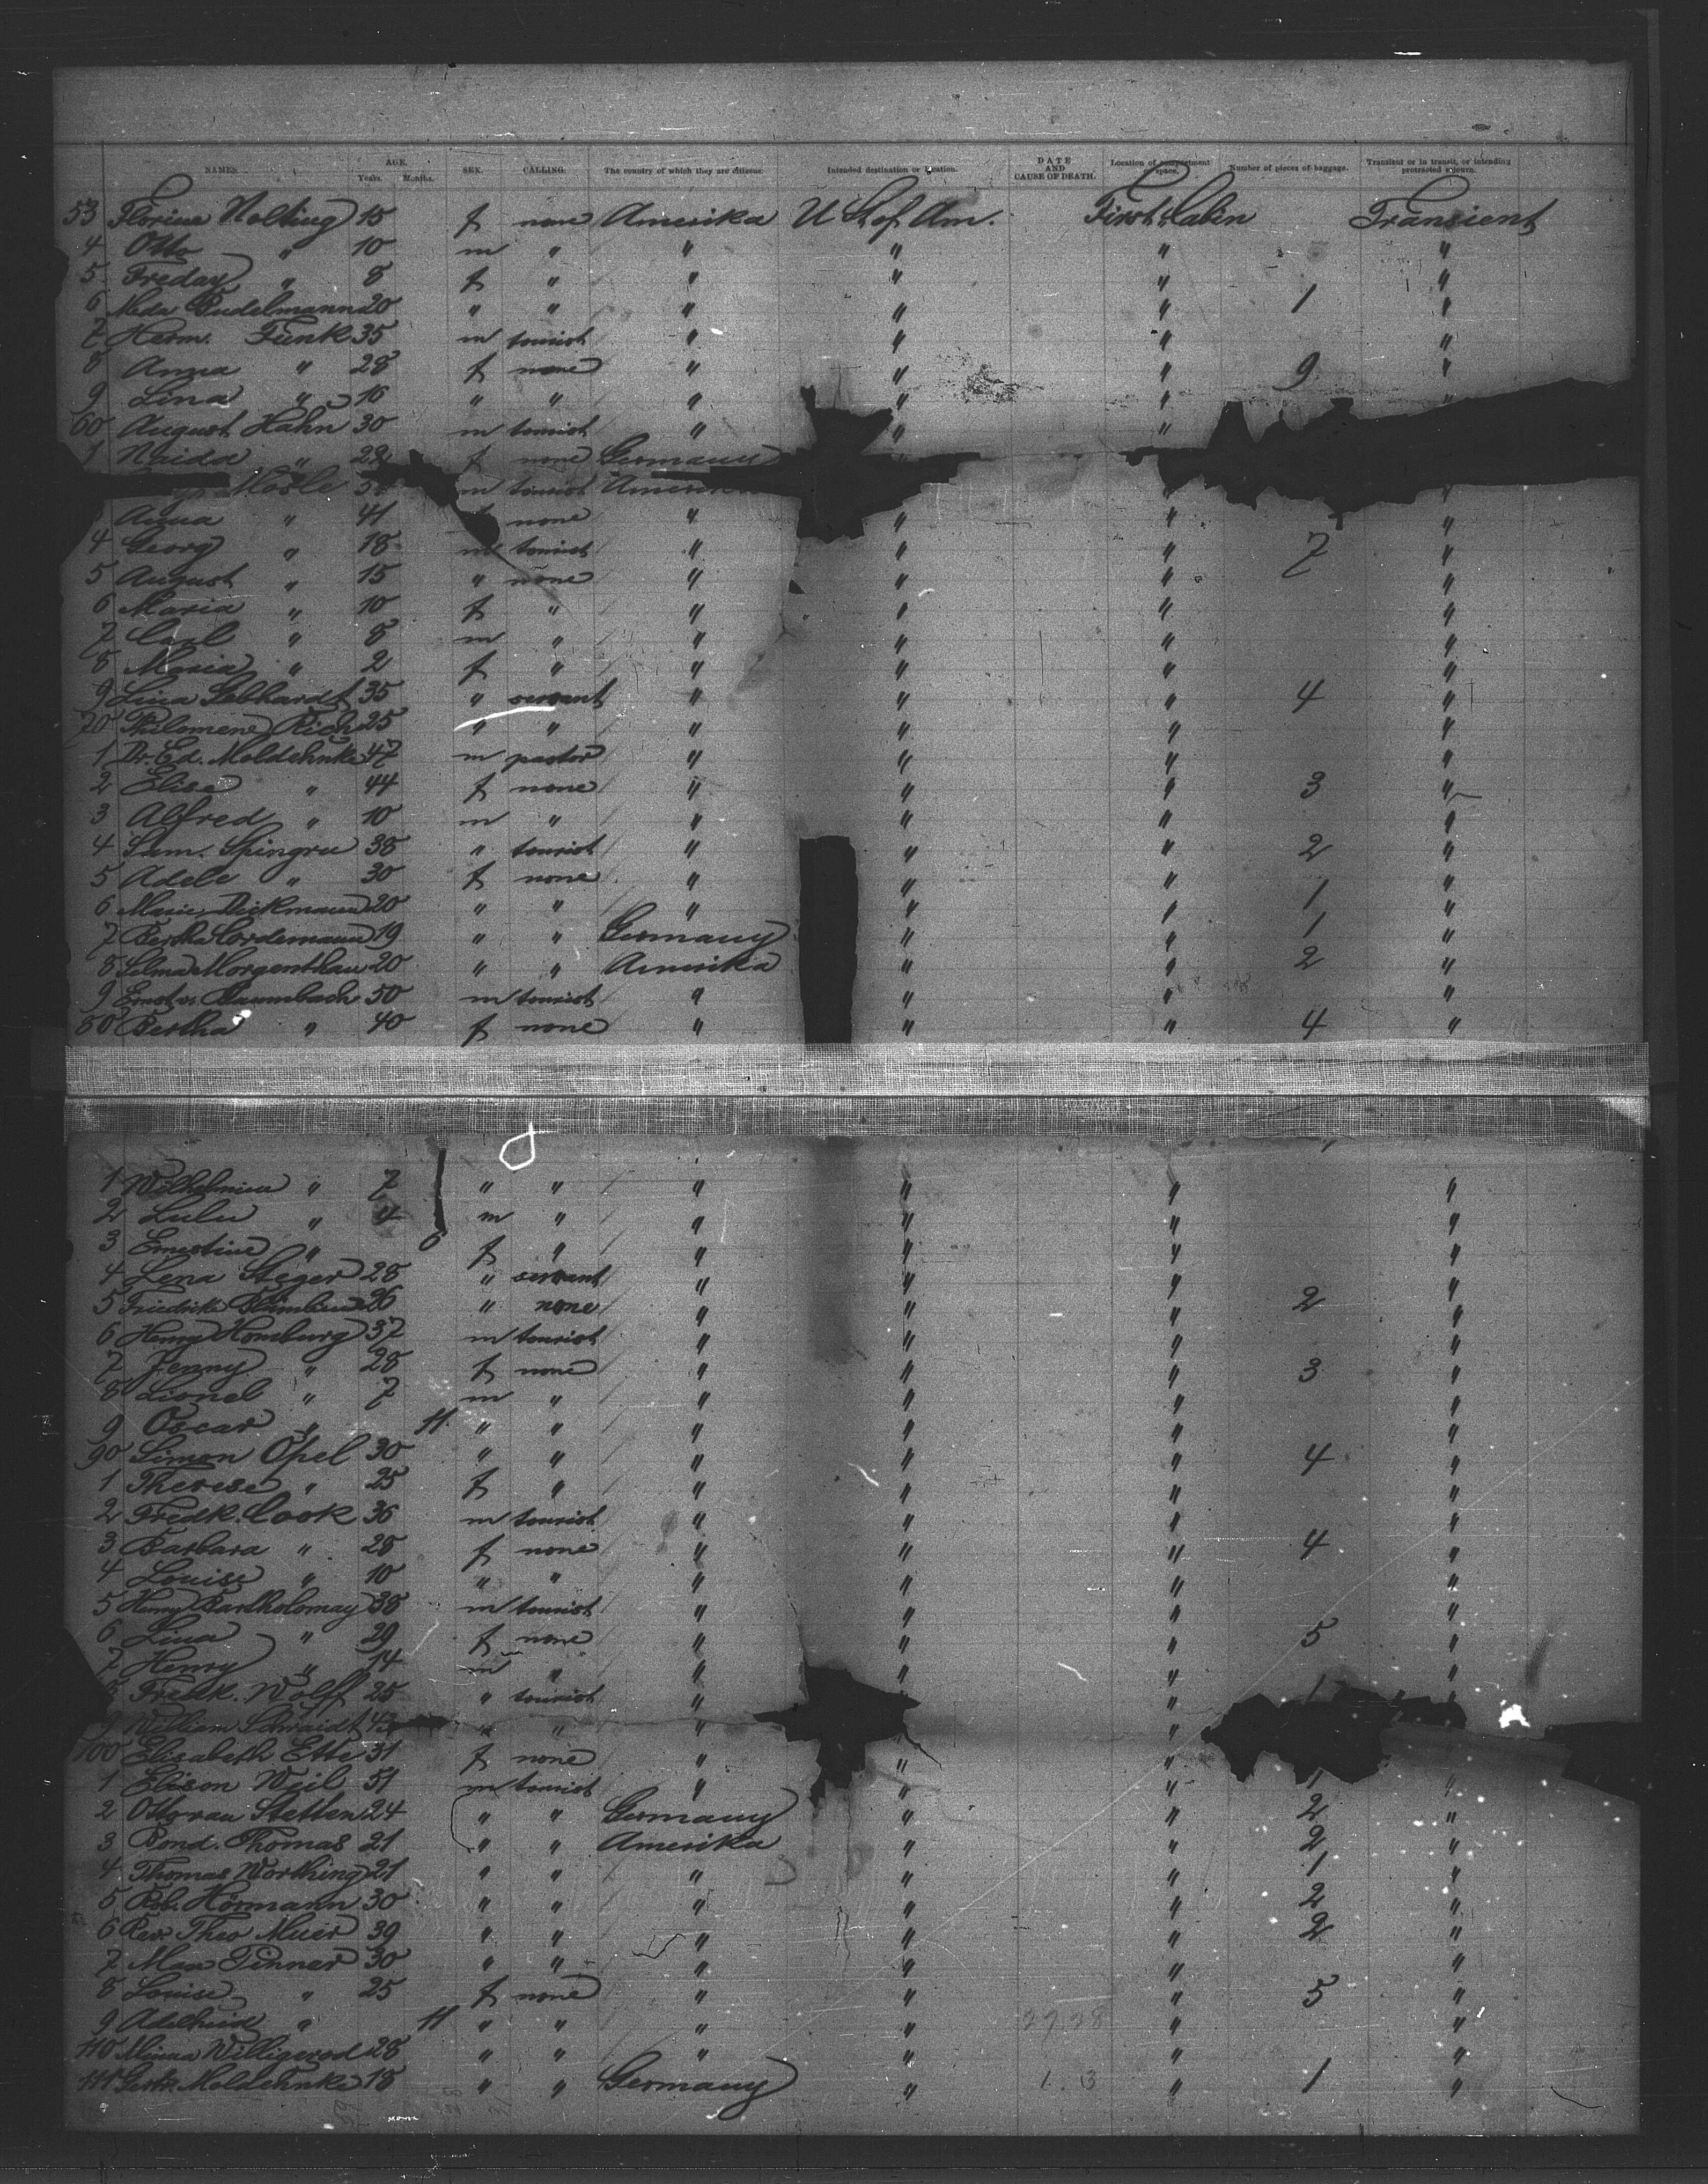 NAMES. AGE. Years. Months. SEX. CALLING. The country of which they are citizens. Intended destination or location. DATE AND CAUSE OF DEATH. Location of compartment or space. Number of pieces of baggage. Transient or in transit, or intending protracted sojourn.
53 Florine Nolting 15 f none Amerika U S of Am. First Cabin Transient
4 Otto " 10 m " " " " "
5 Freday " 8 f " " " " "
6 Meda Budelmann 20 " " " " " 1 "
7 Herm. Funk 35 m tourist " " " "
8 Anna " 28 f none " " " 9 "
9 Lina " 16 " " " " " "
60 August Hahn 30 m tourist " " "
1 Naida " 22 f none Germany "
Mosle m tourist Amerika "
Anna " 41 f none " " " "
4 Georg " 18 m tourist " " " 7 "
5 August " 15 " none " " " "
6 Maria " 10 f " " " " "
7 Carl " 8 m " " " " "
8 Maria " 2 f " " " " "
9 Lina Gebhardt 35 " servant " " " 4 "
70 Philomene Rich 25 " " " " " "
1 Dr. Ed. Moldehnke 47 m pastor " " " "
2 Elise " 44 f none " " " 3 "
3 Alfred " 10 m " " " " "
4 Sam. Spingru 38 " tourist " " " 2 "
5 Adele " 30 f none " " " "
6 Marie Dickmann 20 " " " " " 1 "
7 Bertha Cordemann 19 " " Germany " " 1 "
8 Selma Morgenthau 20 " " Amerika " " 2 "
9 Ernst v. Baumbach 50 m tourist " " " "
80 Bertha " 40 f none " " " 4 "
1 Wilhelmina " 7 " " " " " "
2 Lulu " 4 m " " " " "
3 Ernestine " 6 f " " " " "
4 Lena Steger 28 " servant " " " "
5 Friedrike 26 " none " " " 2 "
6 Henry Homburg 37 m tourist " " " "
7 Jenny " 28 f none " " " 3 "
8 Lionel " 7 m " " " " "
9 Oscar " 11 " " " " " "
90 Simon Opel 30 " " " " " 4 "
1 Therese " 25 f " " " " "
2 Fredk. Cook 36 m tourist " " " "
3 Barbara " 28 f none " " " 4 "
4 Louise " 10 " " " " " "
5 Henry Bartholomay 38 m tourist " " " "
6 Lina " 29 f none " " " 5 "
7 Henry " 14 m " " " " "
Fredk. Wolff 25 " tourist " " " 1 "
9 William Schmidt 43 " " " "
100 Elisabeth Ette 31 f none " " "
1 Elison Weil 51 m tourist " " " 1 "
2 Otto van Stetten 24 " " Germany " " 2 "
3 Bond. Thomas 21 " " Amerika " " 2 "
4 Thomas Worthing 21 " " " " " 1 "
5 Rob. Hörmann 30 " " " " " 2 "
6 Rev. Theo Meier 39 " " " " " 2 "
7 Max Tinner 30 " " " " " "
8 Louise " 25 f none " " " 5 "
9 Adelheid " 11 " " " " " "
110 Minna Willigerod 28 " " " " " "
111 Gertr. Moldehnke 18 " " Germany " " 1 "